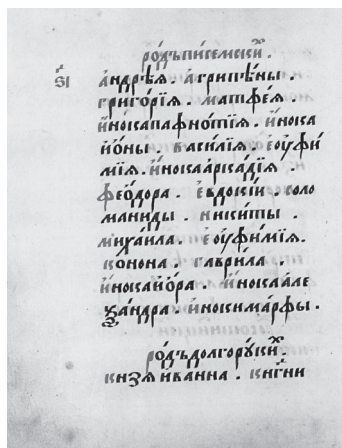 ро́дъ писемски́х .
ѕ҃і
а҆ндре́ѧ . а҆грипѣ́ны .
григо́рїѧ . матфе́ѧ .
и҆́нока пафно́тїѧ . и҆́нока
и҆ѡ́ны . васи́лїѧ . є҆оуфи́
мїѧ . и҆́нока а҆рка́дїѧ .
фео́дора . є҆вдокі́и . соло
маниды . ники́ты .
михаи́ла . є҆оуфи́мїѧ .
конона . гаврі́ла .
и҆́нока и҆́ѻра . и҆́нока а҆ле
ѯа́ндра . и҆ноки ма́рфы .
ро́дъ долгору́ких .
кнѕѧ и҆ва́нна . кнг҃ни